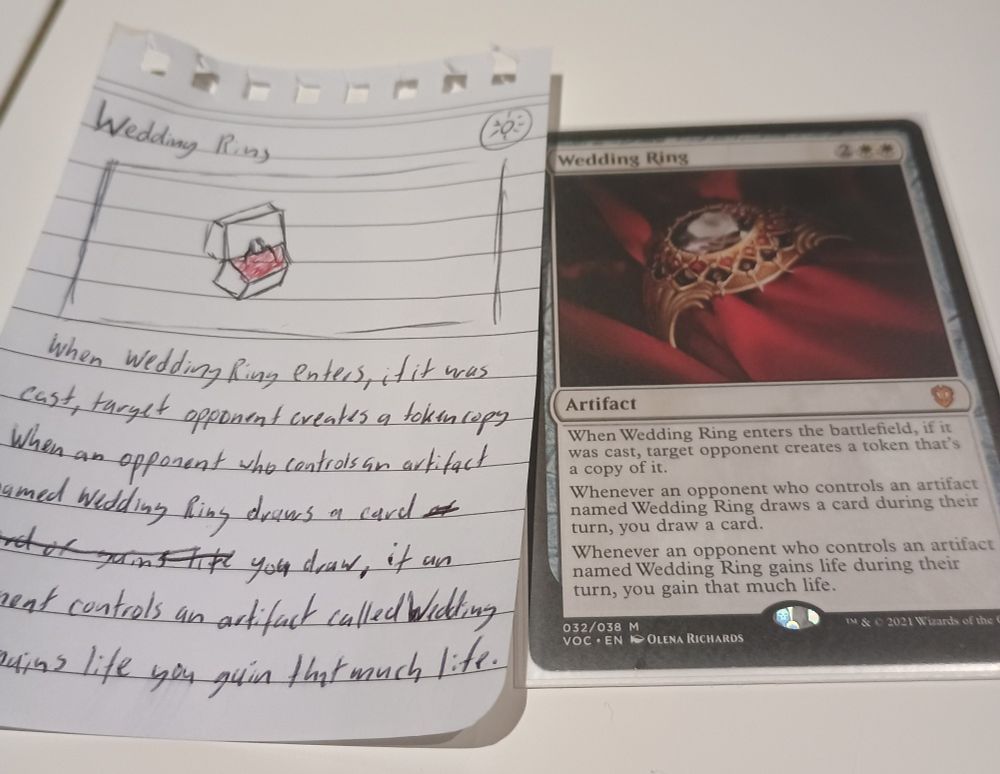 Wedding Ring
When Wedding Ring enters, if it was
cast, target opponent creates a token copy
When an opponent who controls an artifact
amed Wedding Ring draws a card
you draw, if an
nent controls an artifact called Wedding
gains life you gain that much life.
Wedding Ring 2
Artifact
When Wedding Ring enters the battlefield, if it
was cast, target opponent creates a token that's
a copy of it.
Whenever an opponent who controls an artifact
named Wedding Ring draws a card during their
turn, you draw a card.
Whenever an opponent who controls an artifact
named Wedding Ring gains life during their
turn, you gain that much life.
032/038 M
VOC • EN OLENA RICHARDS
™ & © 2021 Wizards of the